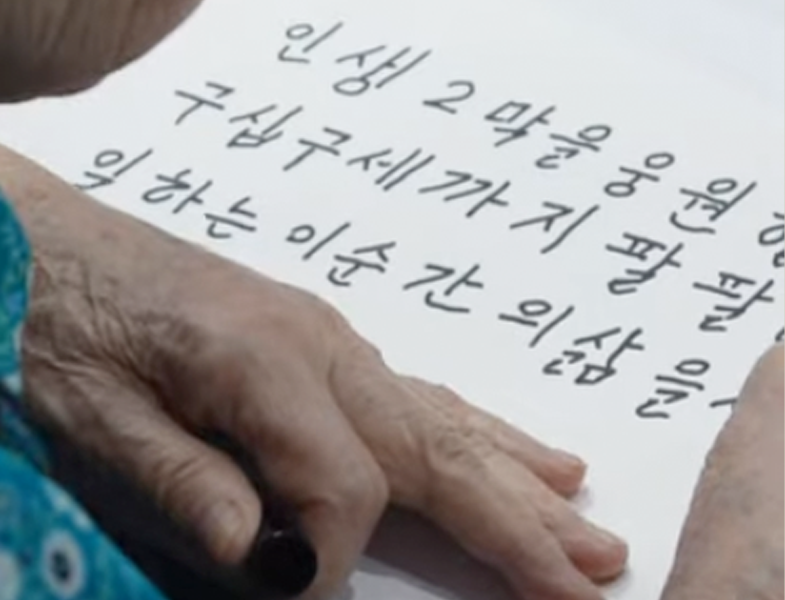 인생 2막을 응원
구십구세까지 팔팔
일하는 이순간의 삶을